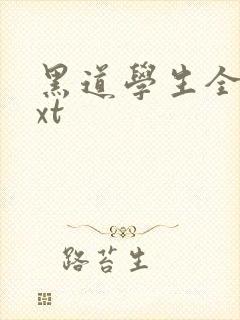 黑道學生全
xt
路苔生